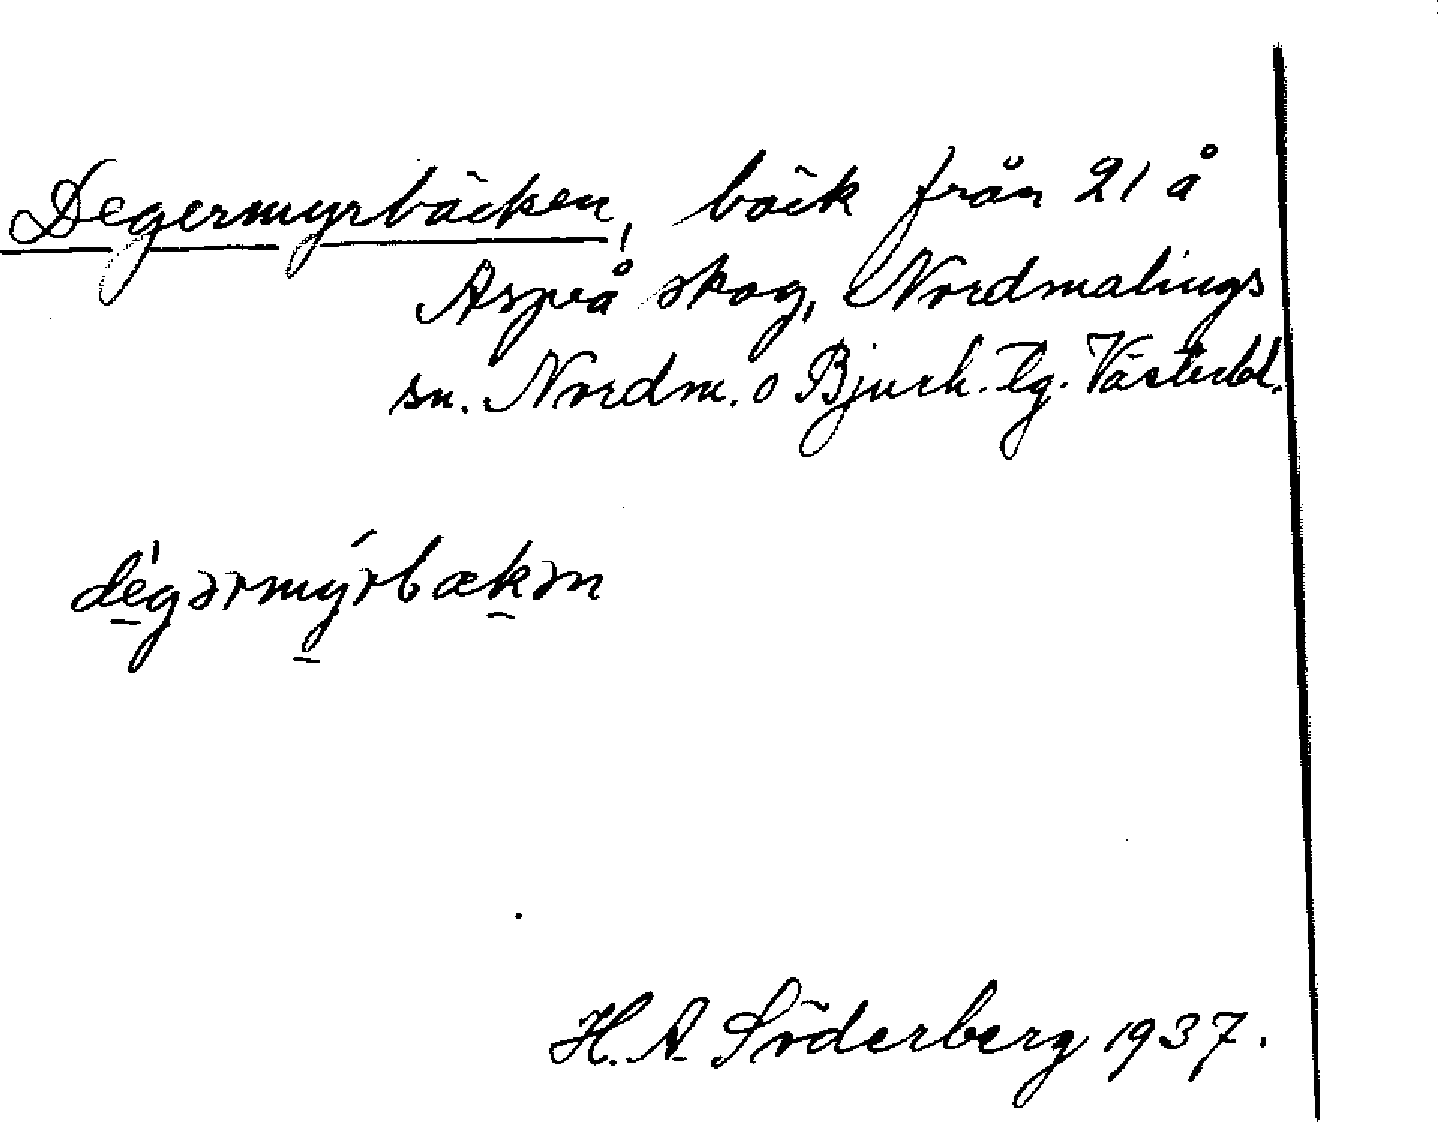 Degermyrbäcken, bäck från 21 å
Aspeå skog, Nordmalings
sn. Nordm. o Bjurh. tg. Västerbt.
dégərmýrbækən
H. A. Söderberg 1937.